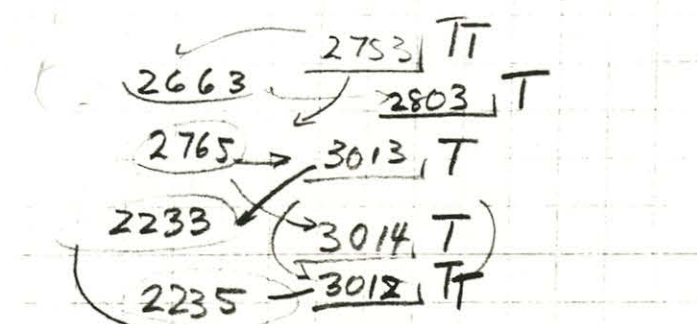 2753 TT
2663
2803 T
2765 3013 T
2233
3014 T
2235 3012 TT